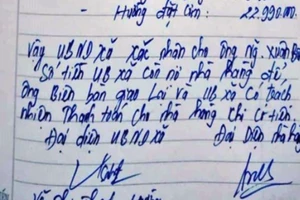 - Hướng đặt cơm: 22.990.000.
Vậy UBND xã xác nhận cho ông Ng Xuân
Số tiền UB xã còn nợ nhà hàng để,
ông Biên bàn giao lại và UB xã có trách
nhiên Thanh toán cho nhà hàng khi có tiền.
Đại diện UBND xã Đại Diện nhà hàng